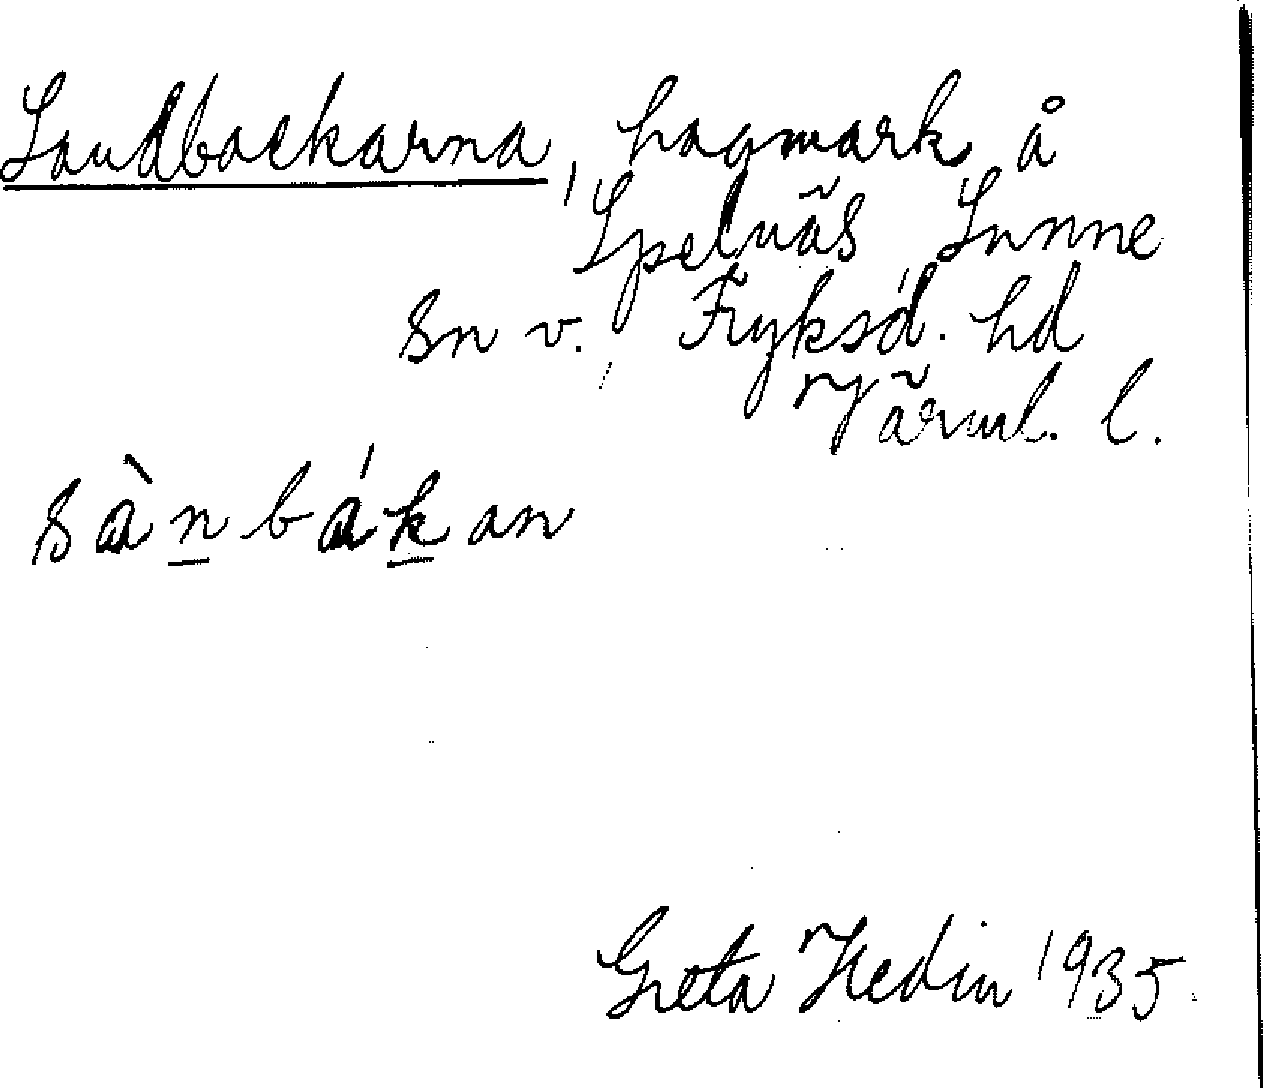 Sandbackarna, hagmark å
Spelnäs Sunne
sn v. Fryksd. hd
Värml. l.
sànbákan
Greta Hedin 1935.